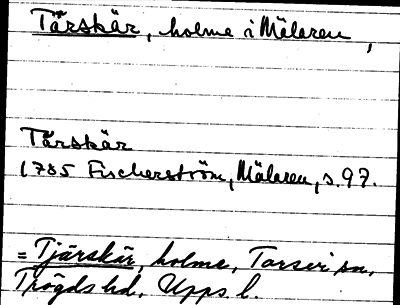 Tärskär, holme i Mälaren,
Tärskär
1785 Fischerström, Mälaren, s. 97.
= Tjärskär, holme, Torsvi sn,
Trögds hd, Upps. l.